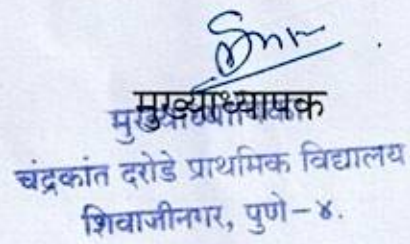 मुख्याध्यापक
मुख्याध्यापिका
चंद्रकांत दरोडे प्राथमिक विद्यालय
शिवाजीनगर, पुणे-४.